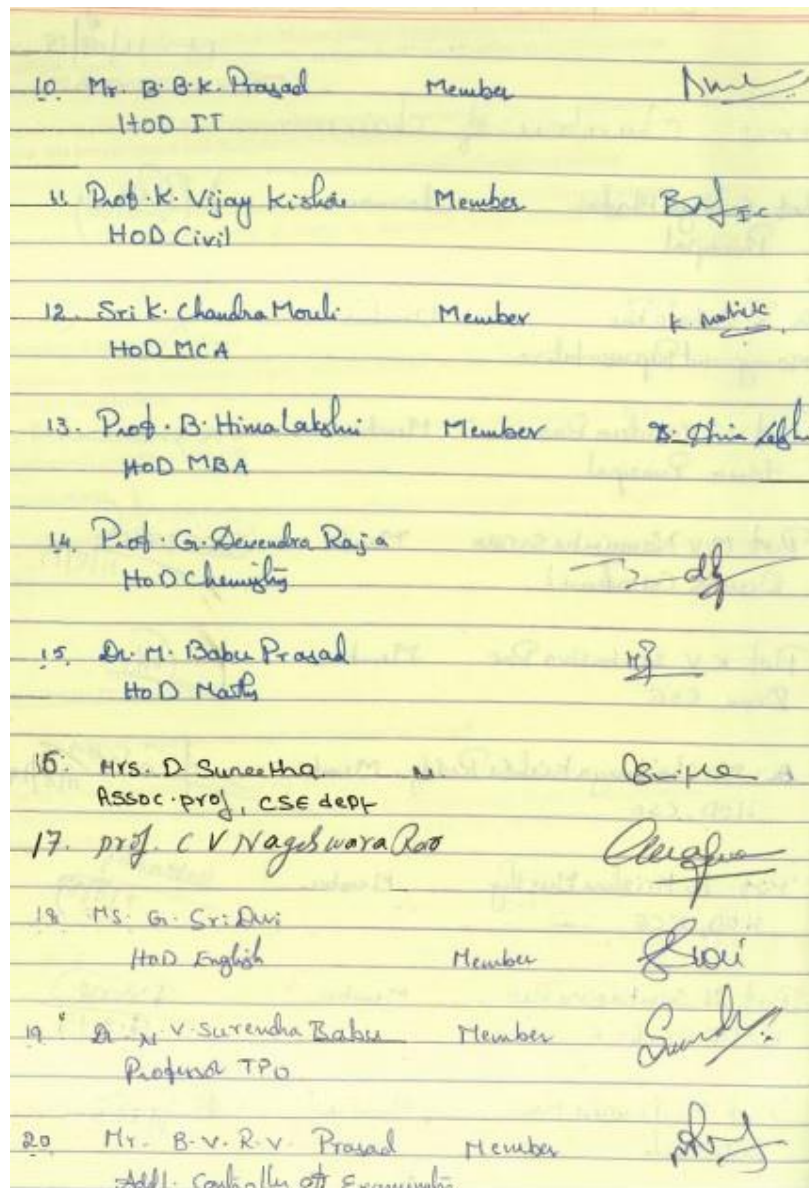 10. Mr. B.B.K. Prasad Member
HOD IT
11. Prof. K. Vijay Kishore Member
HOD Civil
12. Sri K. Chandra Mouli Member
HOD MCA
13. Prof. B. Hima Lakshmi Member
HOD MBA
14. Prof. G. Devendra Raja
HOD Chemistry
15. Dr. M. Babu Prasad
HOD Maths
16. Mrs. D. Suneetha M
Assoc. prof, CSE dept
17. prof. C V Nageswara Rao
18 Ms. G. Sri Devi
HOD English Member
19 Dr. N V. Surendra Babu Member
Professor TPO
20 Mr. B.V.R.V. Prasad Member
Addl. Controller of Examinations